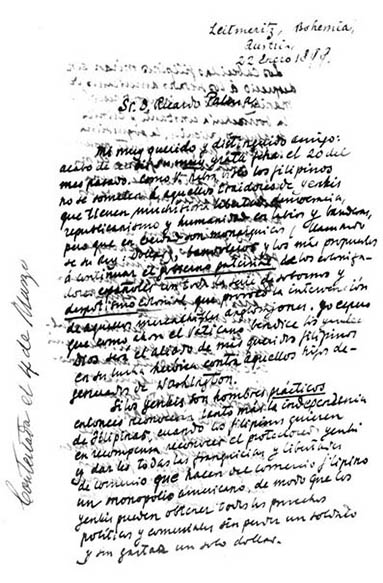 Leitmeritz, Bohemia,
Austria,
22 Enero 1899.
Sr. D. Ricardo
Mi muy querido y distinguido amigo:
acabo de su muy grata fha. el 20 del
mes pasado. Como V. los filipinos
no se someten á aquellos traidores de yankis
que tienen muchísima libertad, democracia,
republicanismo y humanidad en labios y banderas,
pero que en son monárquicos (llamado
se su Rey: Dollar), y los más propensos
á continuar el de los coloniza-
dores españoles con todo su y
despotismo colonial que provocó la intervención
de aquellos anglosajones. Yo espero
que como ahora el Vaticano bendice los yankis
Dios será el aliado de mis queridos filipinos
en su lucha heroica contra aquellos hijos de-
generados de Washington.
Si los yankis son hombres prácticos
entonces reconocerán tanto más la independencia
de Filipinas, cuando los filipinos quieren
en recompensa reconocer el protectorado yanki
y dar les todas las franquicias y libertades
de comercio que hacen del comercio filipino
un monopolio americano, de modo que los
yankis pueden obtener todos los provechos
políticos y comerciales sin perder un soldado
y sin gastar un solo dollar.
Contestada el 4 de Marzo